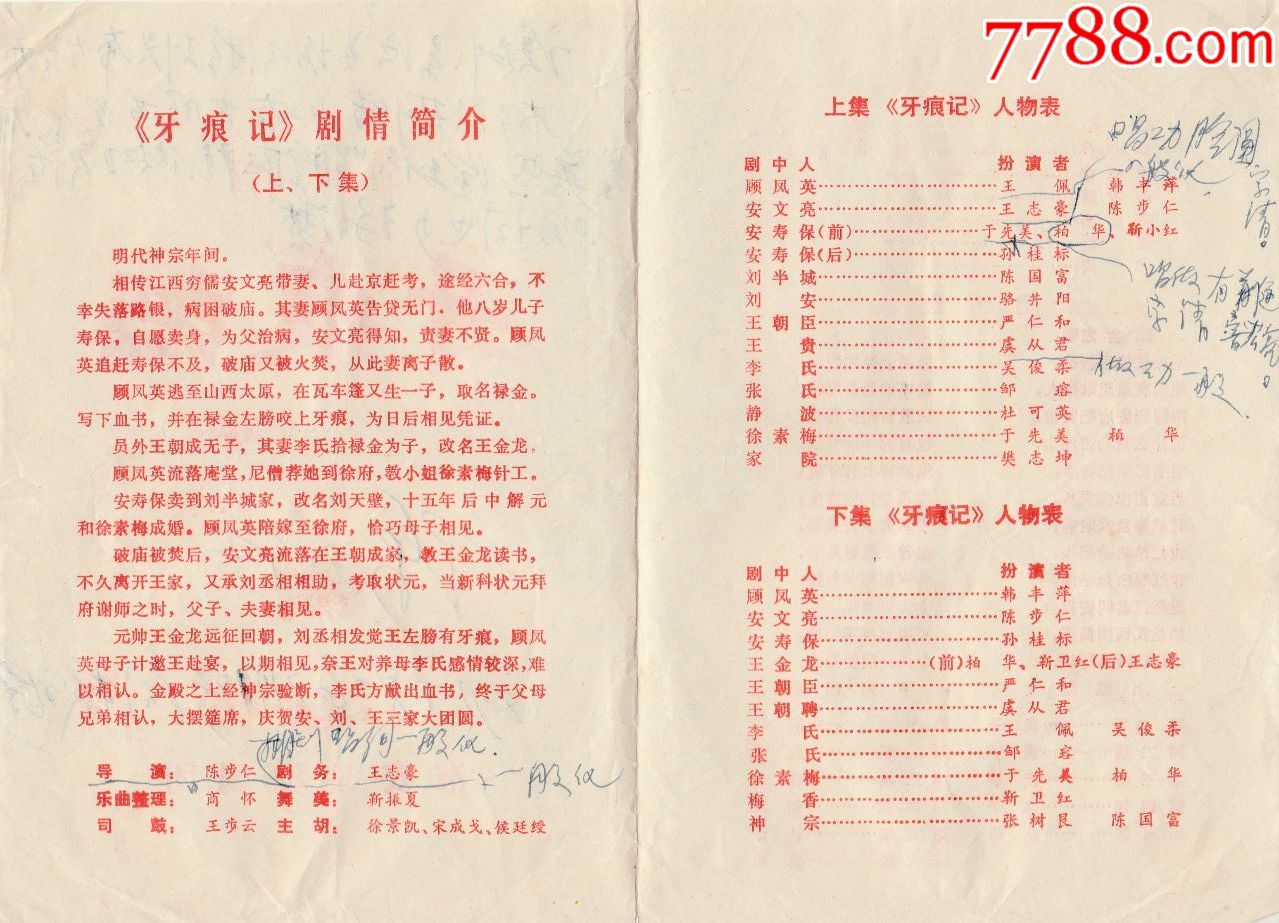 7788.com
《牙痕记》剧情简介
(上、下集)
明代神宗年间。
相传江西穷儒安文亮带妻、儿赴京赶考，途经六合，不
幸失落路银，病困破庙。其妻顾凤英告贷无门．他八岁儿子
寿保，自愿卖身，为父治病，安文亮得知，责妻不贤。顾凤
英追赶寿保不及，破庙又被火焚，从此妻离子散。
顾凤英逃至山西太原，在瓦车篷又生一子，取名禄金。
写下血书，并在禄金左膀咬上牙痕，为日后相见凭证。
员外王朝成无子，其妻李氏拾禄金为子，改名王金龙。
顾凤英流落庵堂，尼僧荐她到徐府，教小姐徐素梅针工。
安寿保卖到刘半城家，改名刘天壁，十五年后中解元
和徐素梅成婚。顾凤英陪嫁至徐府，恰巧母子相见。
破庙被焚后，安文亮流落在王朝成家，教王金龙读书，
不久离开王家，又承刘丞相相助，考取状元，当新科状元拜
府谢师之时，父子、夫妻相见。
元帅王金龙远征回朝，刘丞相发觉王左膀有牙痕，顾凤
英母子计邀王赴宴，以期相见，奈王对养母李氏感情较深，难
以相认。金殿之上经神宗验断，李氏方献出血书，终于父母
兄弟相认，大摆筵席，庆贺安、刘、王三家大团圆。
导演：陈步仁 剧务：王志豪
一般仅
乐曲整理：商怀 舞美：靳振夏
司鼓：王步云 主胡：徐景凯、宋成戈、侯廷绶
上集《牙痕记》人物表
剧中人 扮演者
顾凤英……王佩 韩丰萍
安文亮……王志豪 陈步仁
安寿保(前)……于先美、柏华、靳小红
安寿保(后)……孙桂标
刘半城……陈国富
刘安……骆井阳
王朝臣……严仁和
王贵……虞从君
李氏……吴俊柔
张氏……邹瑢
静波……杜可英
徐素梅……于先美 柏华
家院……樊志坤
做功一般
下集《牙痕记》人物表
剧中人 扮演者
顾凤英……韩丰萍
安文亮……陈步仁
安寿保……孙桂标
王金龙……(前)柏华、靳卫红(后)王志豪
王朝臣……严仁和
王朝聘……虞从君
李氏……王佩 吴俊柔
张氏……邹瑢
徐素梅……于先美 柏华
梅香……靳卫红
神宗……张树艮 陈国富